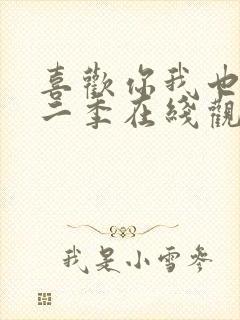 喜歡你我也
二季在綫觀
我是小雪參